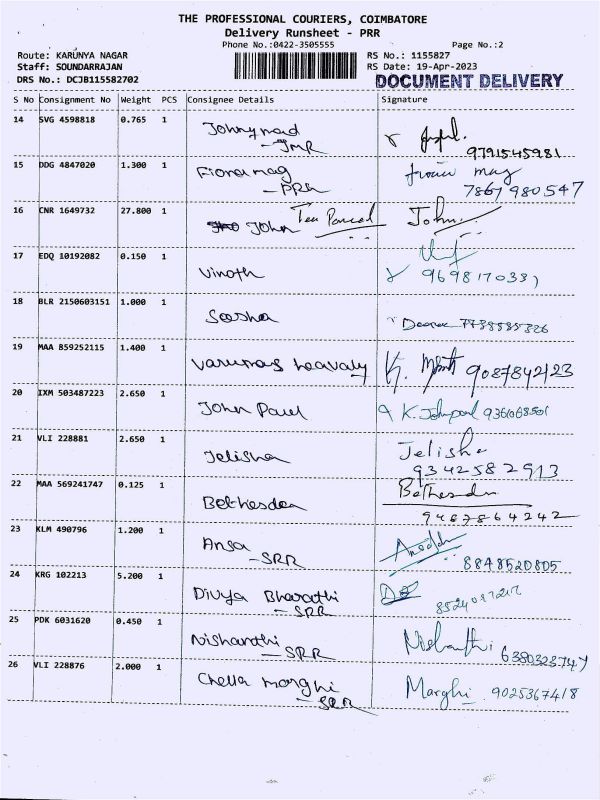 THE PROFESSIONAL COURIERS, COIMBATORE
Delivery Runsheet - PRR
Phone No.:0422-3505555 Page No.:2
Route: KARUNYA NAGAR RS No.: 1155827
Staff: SOUNDARRAJAN RS Date: 19-Apr-2023
DRS No.: DCJB115582702 DOCUMENT DELIVERY
S No Consignment No Weight PCS Consignee Details Signature
14 SVG 4598818 0.765 1
- JMR 9791545981
15 DDG 4847020 1.300 1 Fiona mag
- PRR 7867980547
16 CNR 1649732 27.800 1 John Tea Parcel John
17 EDQ 10192082 0.150 1 Vinoth
18 BLR 2150603151 1.000 1
19 MAA 859252115 1.400 1 9087842123
20 IXM 503487223 2.650 1 John Paul K. Johnpaul
21 VLI 228881 2.650 1 Jelisha Jelisha
9342582913
22 MAA 569241747 0.125 1 Bethesda Bethesda
9467864242
23 KLM 490796 1.200 1 Ansa
- SRR 8848520805
24 KRG 102213 5.200 1 Divya Bharathi
- SRR
25 PDK 6031620 0.450 1 Nishanthi Nishanthi
- SRR
26 VLI 228876 2.000 1 Chella Marghi Marghi 9025367418
- SRR